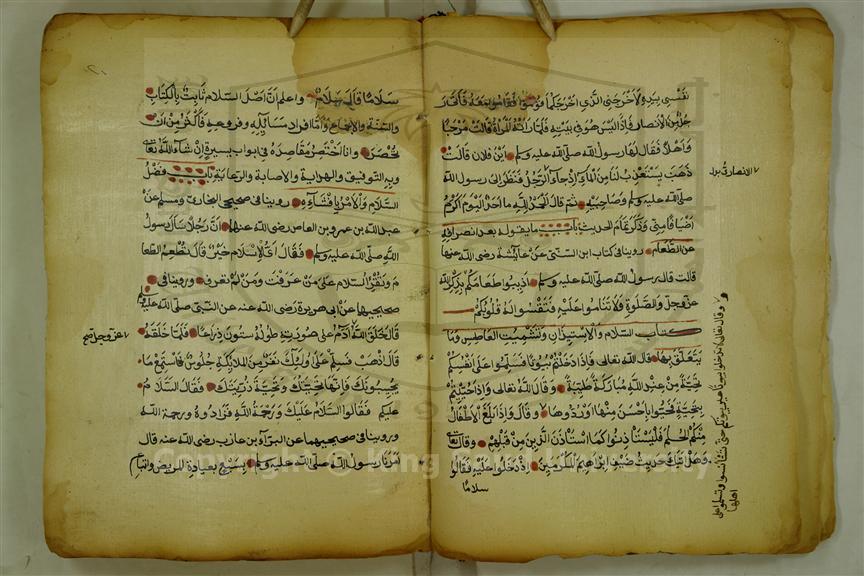 نفسي بيده لاخرجني الذي اخرجكما قوموا فقاموا معه فأتى
رجلا من الانصار فاذا ليس هو في بيته فلما رأته المرأة قالت مرحبا
واهلا فقال لها رسول الله صلى الله عليه وسلم اين فلان قالت
ذهب يستعذب لنا من الماء اذ جاء الرجل فنظر الى رسول الله
صلى الله عليه وسلم وصاحبيه ثم قال الحمد لله ما احد اليوم اكرم
اضيافا مني وذكر تمام الحديث باب ما يقوله بعد انصرافه
عن الطعام روينا في كتاب ابن السني عن عائشة رضى الله عنها
قالت قال رسول الله صلى الله عليه وسلم اذيبوا طعامكم بذكر الله
عز وجل والصلوة ولا تناموا عليه فتقسوا له قلوبكم
كتاب السلام والاستيذان وتشميت العاطس وما
يتعلق بها قال الله تعالى فاذا دخلتم بيوتا فسلموا على انفسكم
تحية من عند الله مباركة طيبة وقال الله تعالى واذا حييتم
بتحية فحيوا باحسن منها او ردوها وقال واذا بلغ الاطفال
منكم الحلم فليستأذنوا كما استأذن الذين من قبلهم وقال تعالى
وهل اتيك حديث ضيف ابراهيم المكرمين اذ دخلوا عليه فقالوا
سلاما
الانصاري بدل
وقال تعالى لا تدخلوا بيوتا غير بيوتكم حتى تستأنسوا وتسلموا على
اهلها
سلاما قال سلام واعلم ان اصل السلام ثابت بالكتاب
والسنة والاجماع واما افراد مسائله وفروعه فاكثر من ان
تحصر وانا اختصر مقاصده في ابواب يسيرة ان شاء الله تعالى
وبه التوفيق والهداية والاصابة والرعاية باب فضل
السلام والامر بافشائه روينا في صحيحي البخاري ومسلم عن
عبد الله بن عمرو بن العاص رضى الله عنهما ان رجلا سأل رسول
الله صلى الله عليه وسلم فقال اي الاسلام خير قال تطعم الطعا
م وتقرئ السلام على من عرفت ومن لم تعرف وروينا في
صحيحيهما عن ابي هريرة رضى الله عنه عن النبي صلى الله عليه وسلم
قال خلق الله آدم على صورته طوله ستون ذراعا فلما خلقه
قال اذهب فسلم على اولئك نفر من الملائكة جلوس فاستمع ما
يجيبونك فانها تحيتك وتحية ذريتك فقال السلام
عليكم فقالوا السلام عليك ورحمة الله فزادوه ورحمة الله
وروينا في صحيحيهما عن البراء بن عازب رضى الله عنه قال
امرنا رسول الله صلى الله عليه وسلم بسبع بعيادة المريض واتبا
عز وجل
Copyright © King Saud University